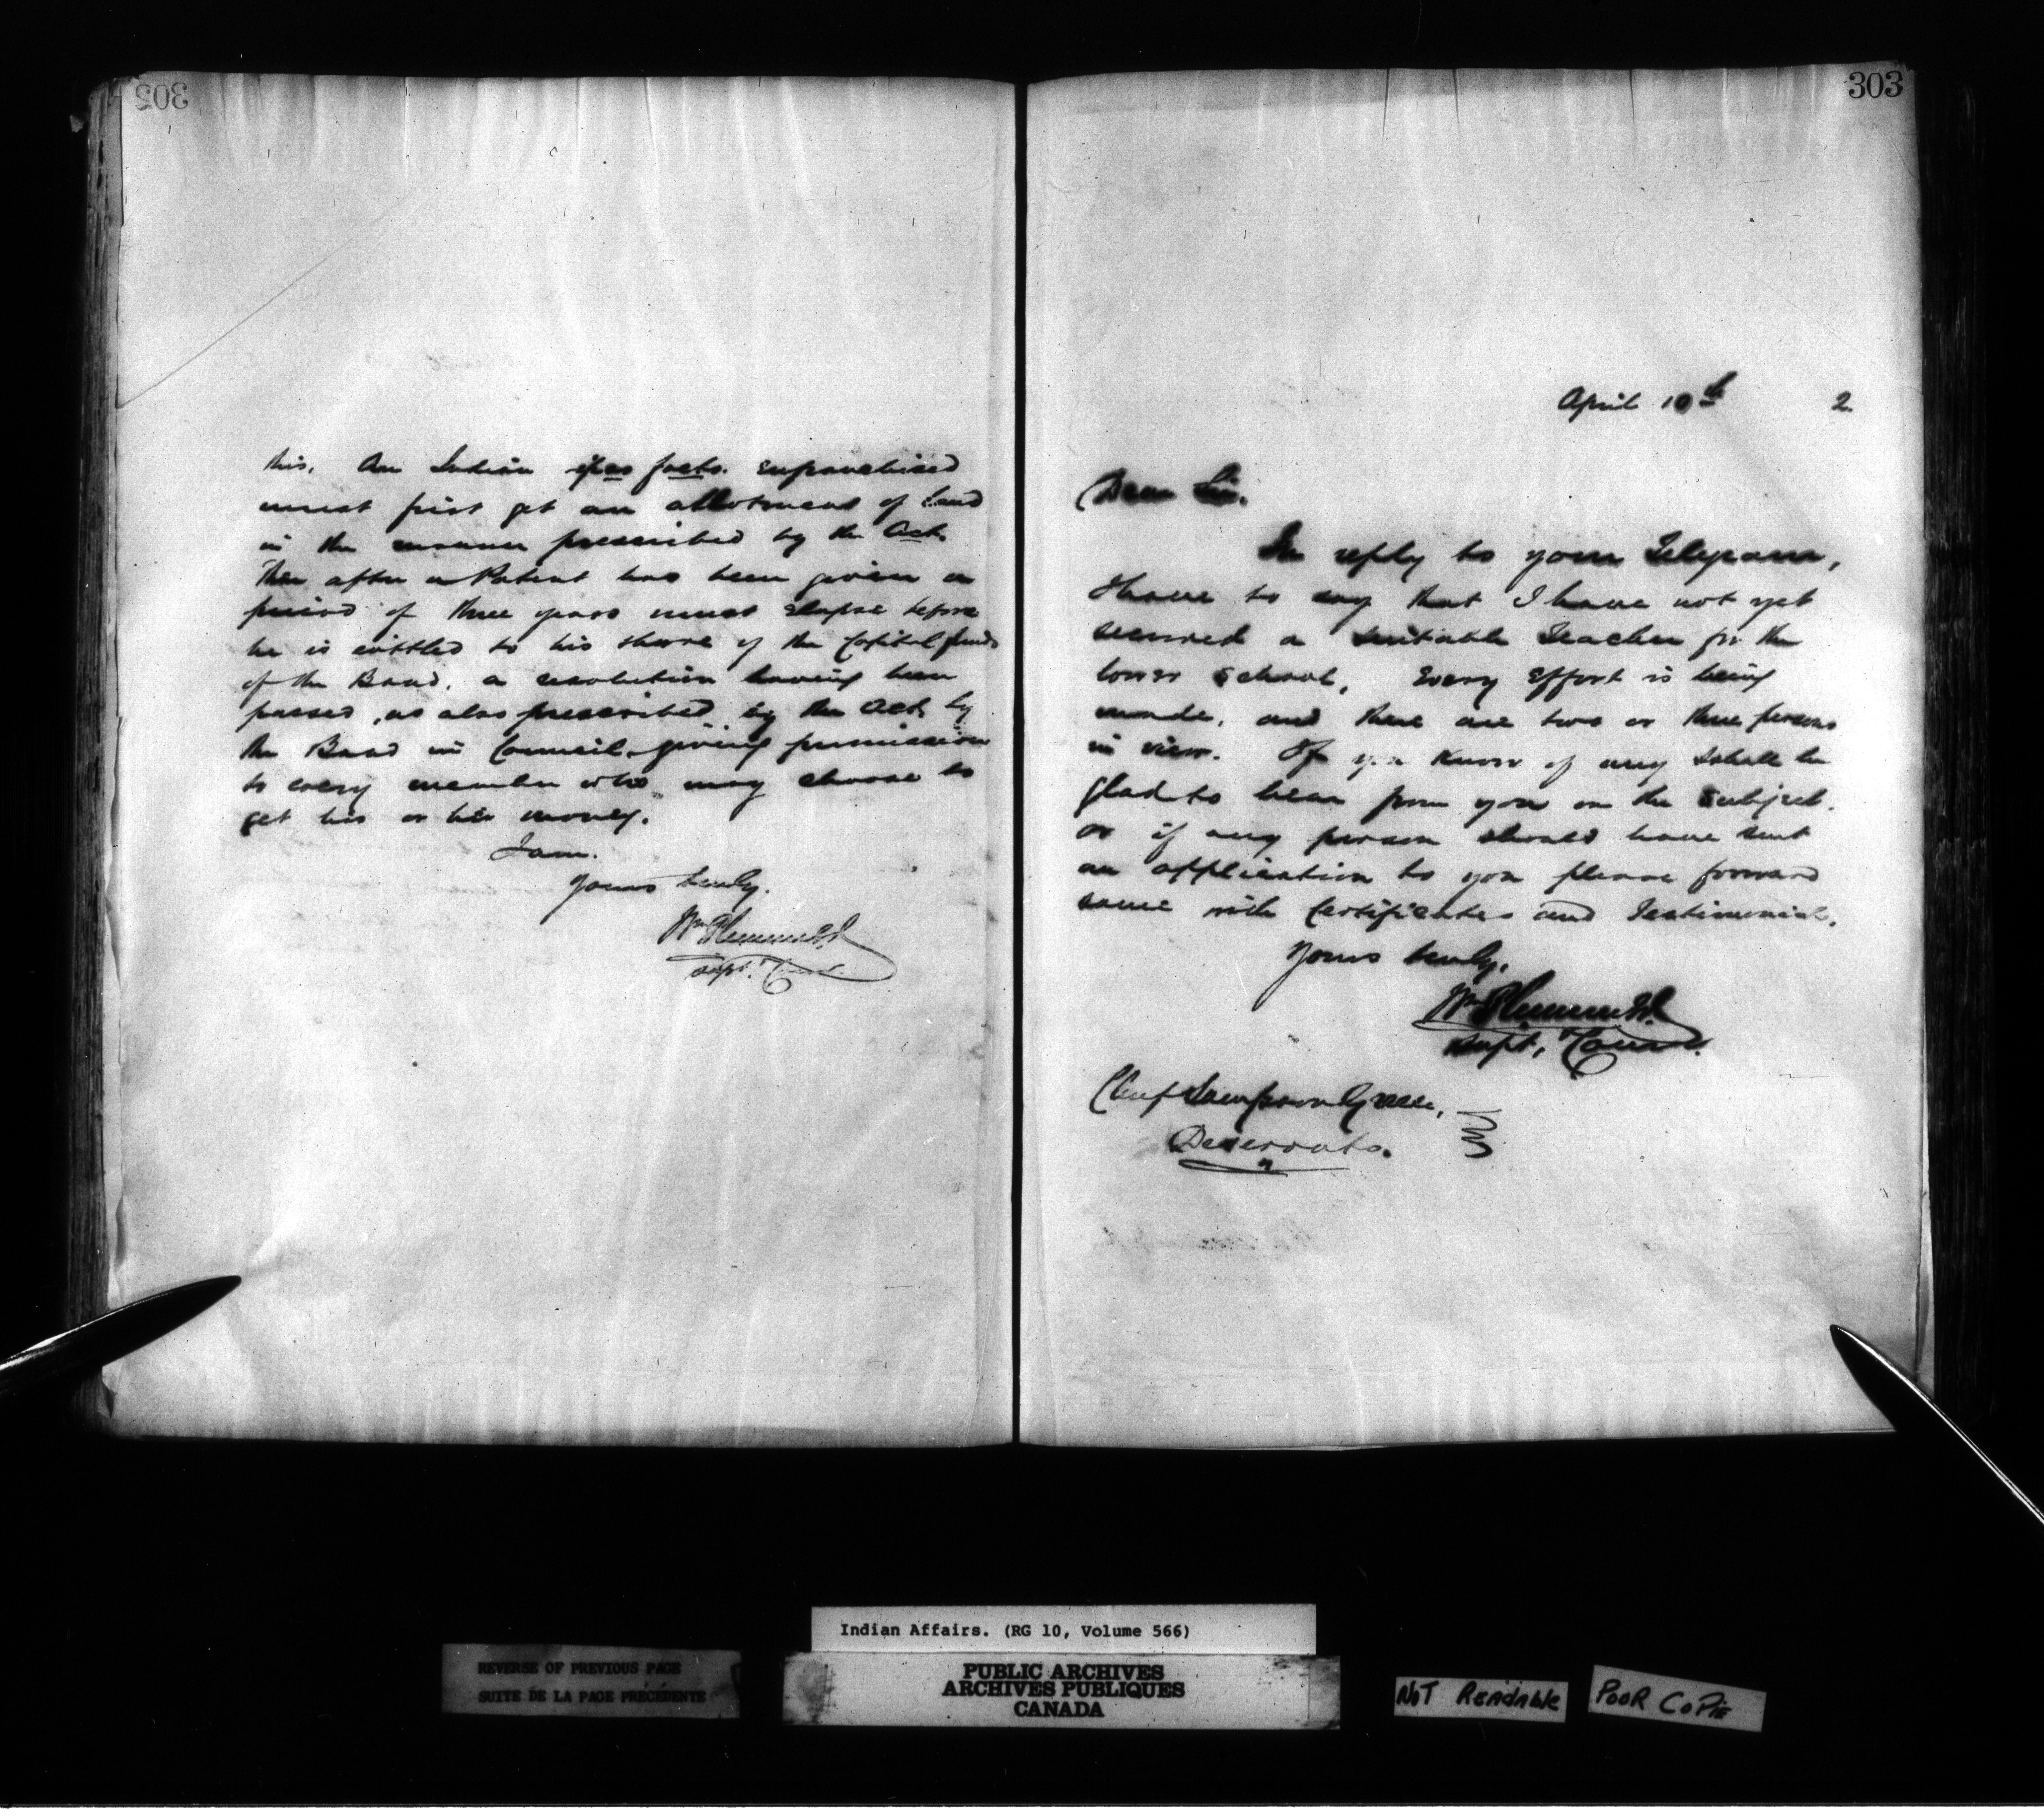 302
this. An Indian ipso facto enfranchised
must first get an allotment of land
in the manner prescribed by the Act.
Then after a Patent has been given a
period of three years must elapse before
he is entitled to his share of the Capital funds
of the Band, a resolution having been
passed, as also prescribed by the Act, by
the Band in Council, giving permission
to every member who may choose to
get his or her money.
I am.
Yours truly,
Wm Plummer
Supt. Comr.
303
April 10th 2
Dear Sir.
In reply to your Telegram,
I have to say that I have not yet
secured a suitable Teacher for the
lower School. Every effort is being
made, and there are two or three persons
in view. If you know of any shall be
glad to hear from you on the subject.
or if any person should have sent
an application to you please forward
same with Certificates and Testimonials.
Yours truly,
Wm Plummer
Supt. Comr.
Chief Sampson Green,
Deseronto.
Indian Affairs. (RG 10, Volume 566)
REVERSE OF PREVIOUS PAGE
SUITE DE LA PAGE PRÉCÉDENTE
PUBLIC ARCHIVES
ARCHIVES PUBLIQUES
CANADA
NOT READABLE
POOR COPIE